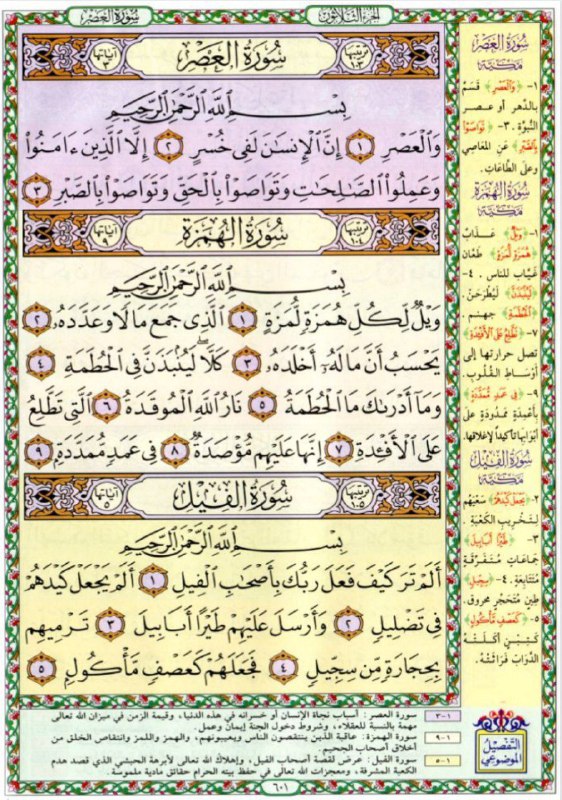 سورة العصر
الجزء الثلاثون
ترتيبها ١٠٣
سُورَةُ العَصْرِ
آياتها ٣
بِسْمِ اللَّهِ الرَّحْمَٰنِ الرَّحِيمِ
وَالْعَصْرِ ١ إِنَّ الْإِنسَانَ لَفِي خُسْرٍ ٢ إِلَّا الَّذِينَ ءَامَنُوا
وَعَمِلُوا الصَّالِحَاتِ وَتَوَاصَوْا بِالْحَقِّ وَتَوَاصَوْا بِالصَّبْرِ ٣
ترتيبها ١٠٤
سُورَةُ الهُمَزَةِ
آياتها ٩
بِسْمِ اللَّهِ الرَّحْمَٰنِ الرَّحِيمِ
وَيْلٌ لِّكُلِّ هُمَزَةٍ لُّمَزَةٍ ١ الَّذِي جَمَعَ مَالًا وَعَدَّدَهُ ٢
يَحْسَبُ أَنَّ مَالَهُ أَخْلَدَهُ ٣ كَلَّا لَيُنبَذَنَّ فِي الْحُطَمَةِ ٤
وَمَا أَدْرَىٰكَ مَا الْحُطَمَةُ ٥ نَارُ اللَّهِ الْمُوقَدَةُ ٦ الَّتِي تَطَّلِعُ
عَلَى الْأَفْئِدَةِ ٧ إِنَّهَا عَلَيْهِم مُّؤْصَدَةٌ ٨ فِي عَمَدٍ مُّمَدَّدَةٍ ٩
ترتيبها ١٠٥
سُورَةُ الفِيلِ
آياتها ٥
بِسْمِ اللَّهِ الرَّحْمَٰنِ الرَّحِيمِ
أَلَمْ تَرَ كَيْفَ فَعَلَ رَبُّكَ بِأَصْحَابِ الْفِيلِ ١ أَلَمْ يَجْعَلْ كَيْدَهُمْ
فِي تَضْلِيلٍ ٢ وَأَرْسَلَ عَلَيْهِمْ طَيْرًا أَبَابِيلَ ٣ تَرْمِيهِم
بِحِجَارَةٍ مِّن سِجِّيلٍ ٤ فَجَعَلَهُمْ كَعَصْفٍ مَّأْكُولٍ ٥
سُورَةُ العَصْرِ
مَكِّيَّة
١- ﴿وَالْعَصْرِ﴾ قَسَمٌ
بالدَّهر أو عصر
النُّبوَّة. ٣- ﴿تَوَاصَوْا
بِالصَّبْرِ﴾ عَنِ المَعَاصِي
وعلى الطَّاعَاتِ.
سُورَةُ الهُمَزَةِ
مَكِّيَّة
١- ﴿وَيْلٌ﴾ عَذَابٌ
﴿هُمَزَةٍ لُمَزَةٍ﴾ طَعَّانٍ
عَيَّابٍ للنَّاس. ٤-
﴿لَيُنْبَذَنَّ﴾ لَيُطْرَحَنَّ.
﴿الحُطَمَةِ﴾ جهنم.
٧- ﴿تَطَّلِعُ عَلَى الْأَفْئِدَةِ﴾
تصل حرارتها إلى
أَوْسَاطِ القُلُوبِ.
٩- ﴿فِي عَمَدٍ مُّمَدَّدَةٍ﴾
بِأَعْمِدَةٍ مَمْدُودَةٍ عَلَى
أَبْوَابِهَا تَأْكِيداً لإِغْلَاقِهَا.
سُورَةُ الفِيلِ
مَكِّيَّة
٢- ﴿يَجْعَلْ كَيْدَهُمْ﴾ سَعْيَهُم
لِتَخْرِيبِ الكَعْبَةِ.
٣- ﴿طَيْرًا أَبَابِيلَ﴾
جَمَاعَاتٍ مُتَفَرِّقَةً
مُتَتَابِعَةً. ٤- ﴿سِجِّيلٍ﴾
طِينٍ مُتَحَجِّرٍ محروق.
٥- ﴿كَعَصْفٍ مَّأْكُولٍ﴾
كَتِبْنٍ أَكَلَتْهُ
الدَّوَابُّ فَرَاثَتْهُ.
التفصيل الموضوعي
١-٣ سورة العصر: أسباب نجاة الإنسان أو خسرانه في هذه الدنيا، وقيمة الزمن في ميزان الله تعالى
مهمة بالنسبة للعقلاء، وشروط دخول الجنة إيمان وعمل.
١-٩ سورة الهمزة: عاقبة الذين ينتقصون الناس ويعيبونهم، والهمز واللمز وانتقاص الخلق من
أخلاق أصحاب الجحيم.
١-٥ سورة الفيل: عرض لقصة أصحاب الفيل، وإهلاك الله تعالى لأبرهة الحبشي الذي قصد هدم
الكعبة المشرفة، ومعجزات الله تعالى في حفظ بيته الحرام حقائق مادية ملموسة.
٦٠١